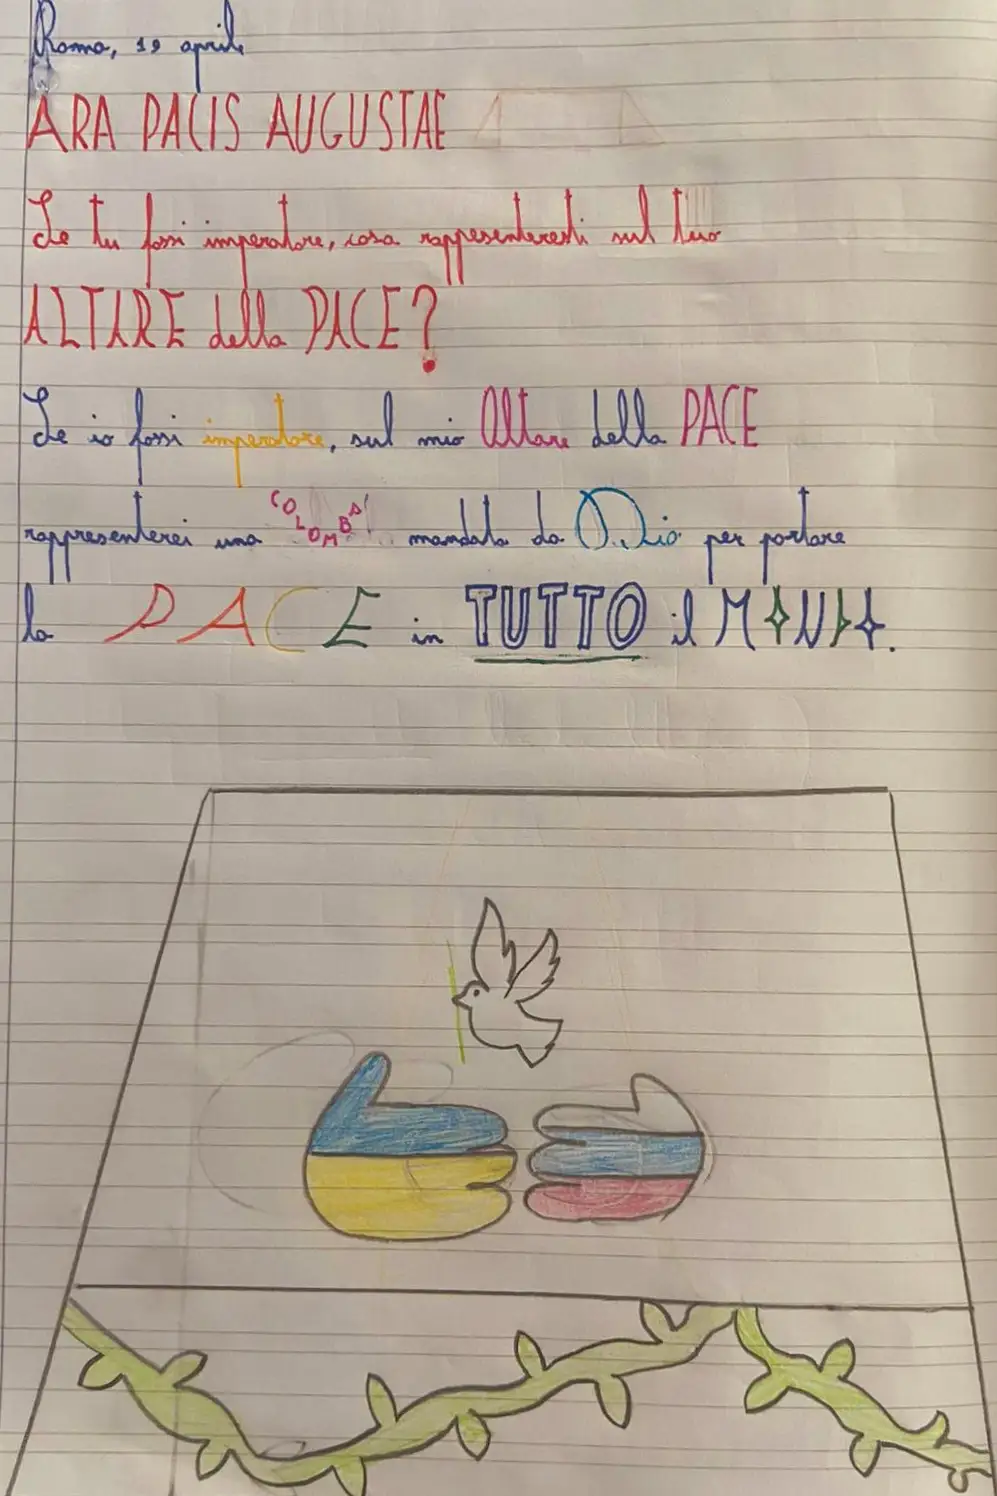 Roma, 19 aprile
ARA PACIS AUGUSTAE
Se tu fossi imperatore, cosa rappresenteresti sul tuo
ALTARE della PACE?
Se io fossi imperatore, sul mio Altare della PACE
rappresenterei una COLOMBA mandata da Dio per portare
la PACE in TUTTO il MONDO.